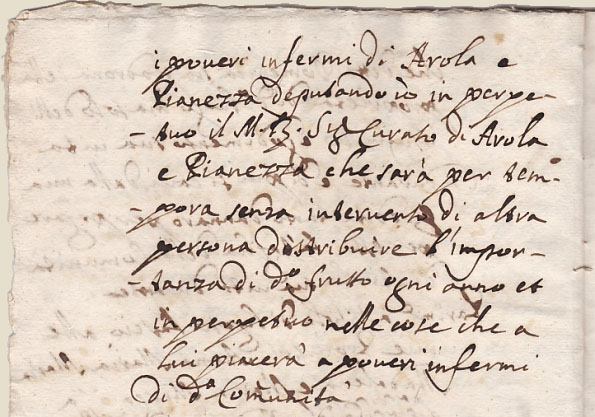 i poveri infermi di Arola e
Pianezza deputando io in perpe-
-tuo il M. R. Sig Curato di Arola
e Pianezza che sarà per tem-
-pora senza intervento di altra
persona distribuire l'impor-
-tanza di d.o frutto ogni anno et
in perpetuo nelle cose che a
lui piacerà a poveri infermi
di d.a Comunità